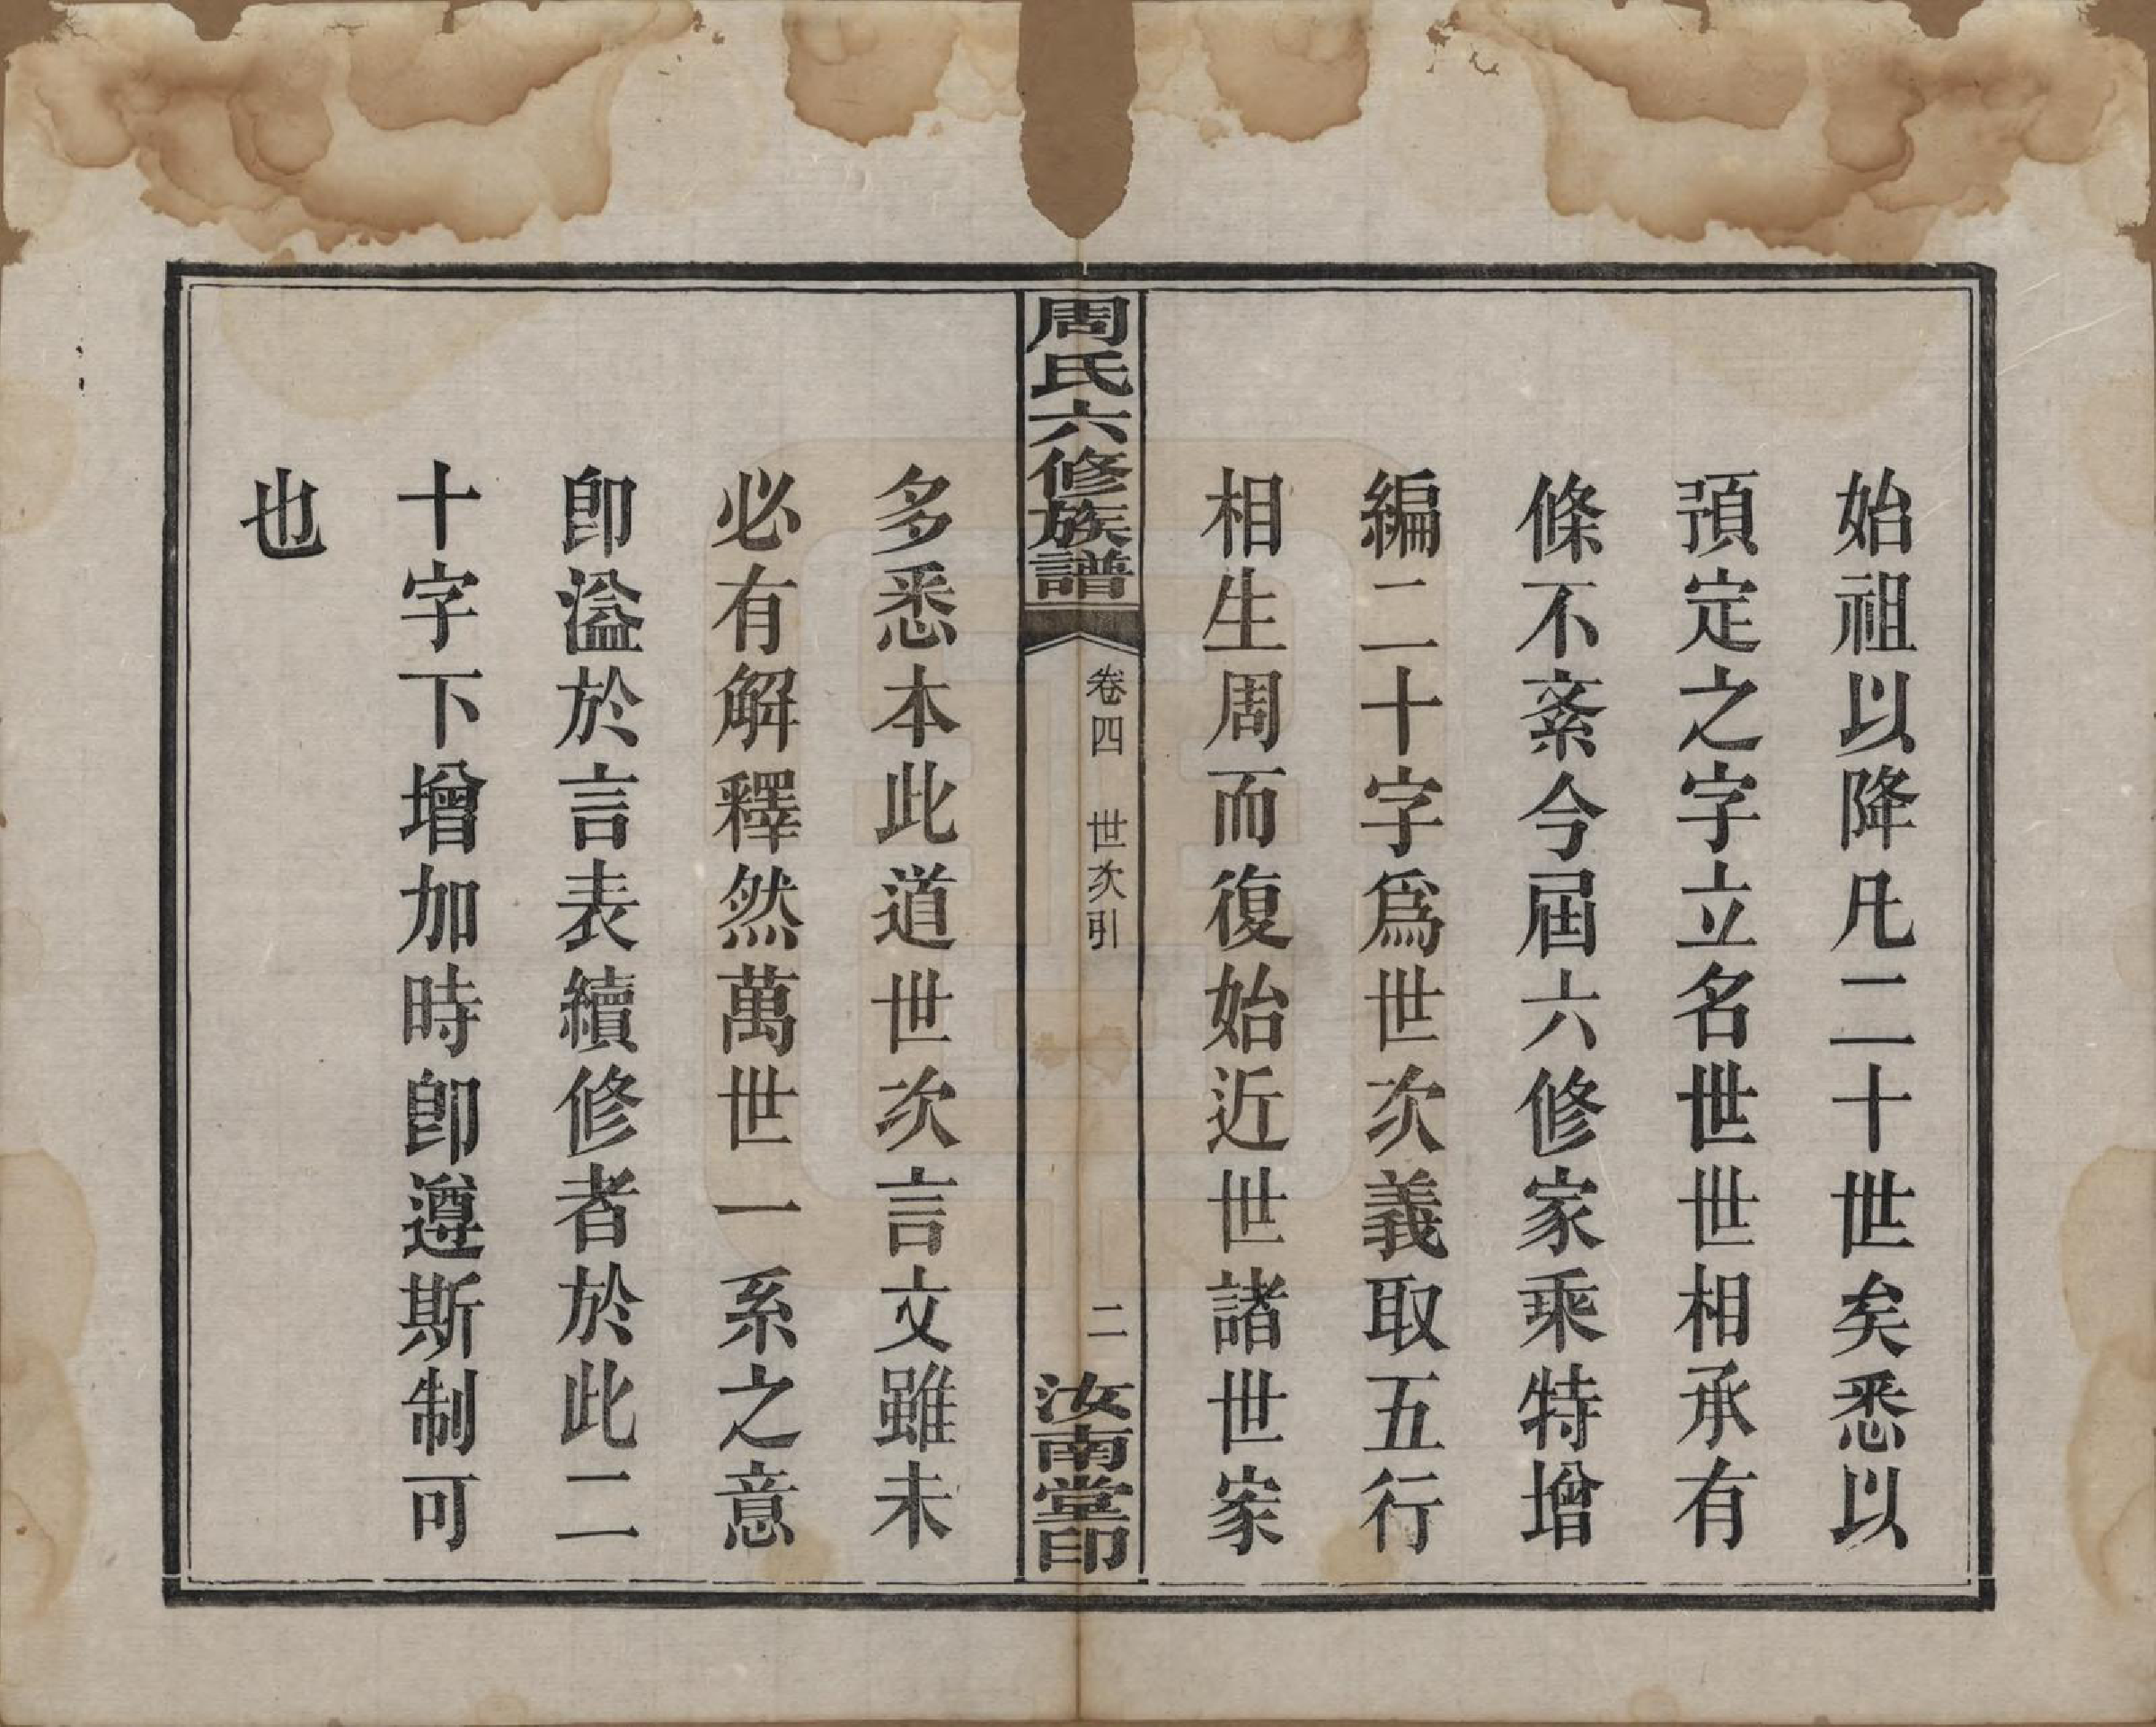 始祖以降凡二十世矣悉以
預定之字立名世世相承有
條不紊今屆六修家乘特增
編二十字爲世次義取五行
相生周而復始近世諸世家
周氏六修族譜
卷四　世次引
二
汝南堂印
多悉本此道世次言文雖未
必有解釋然萬世一系之意
卽溢於言表續修者於此二
十字下增加時卽遵斯制可
也